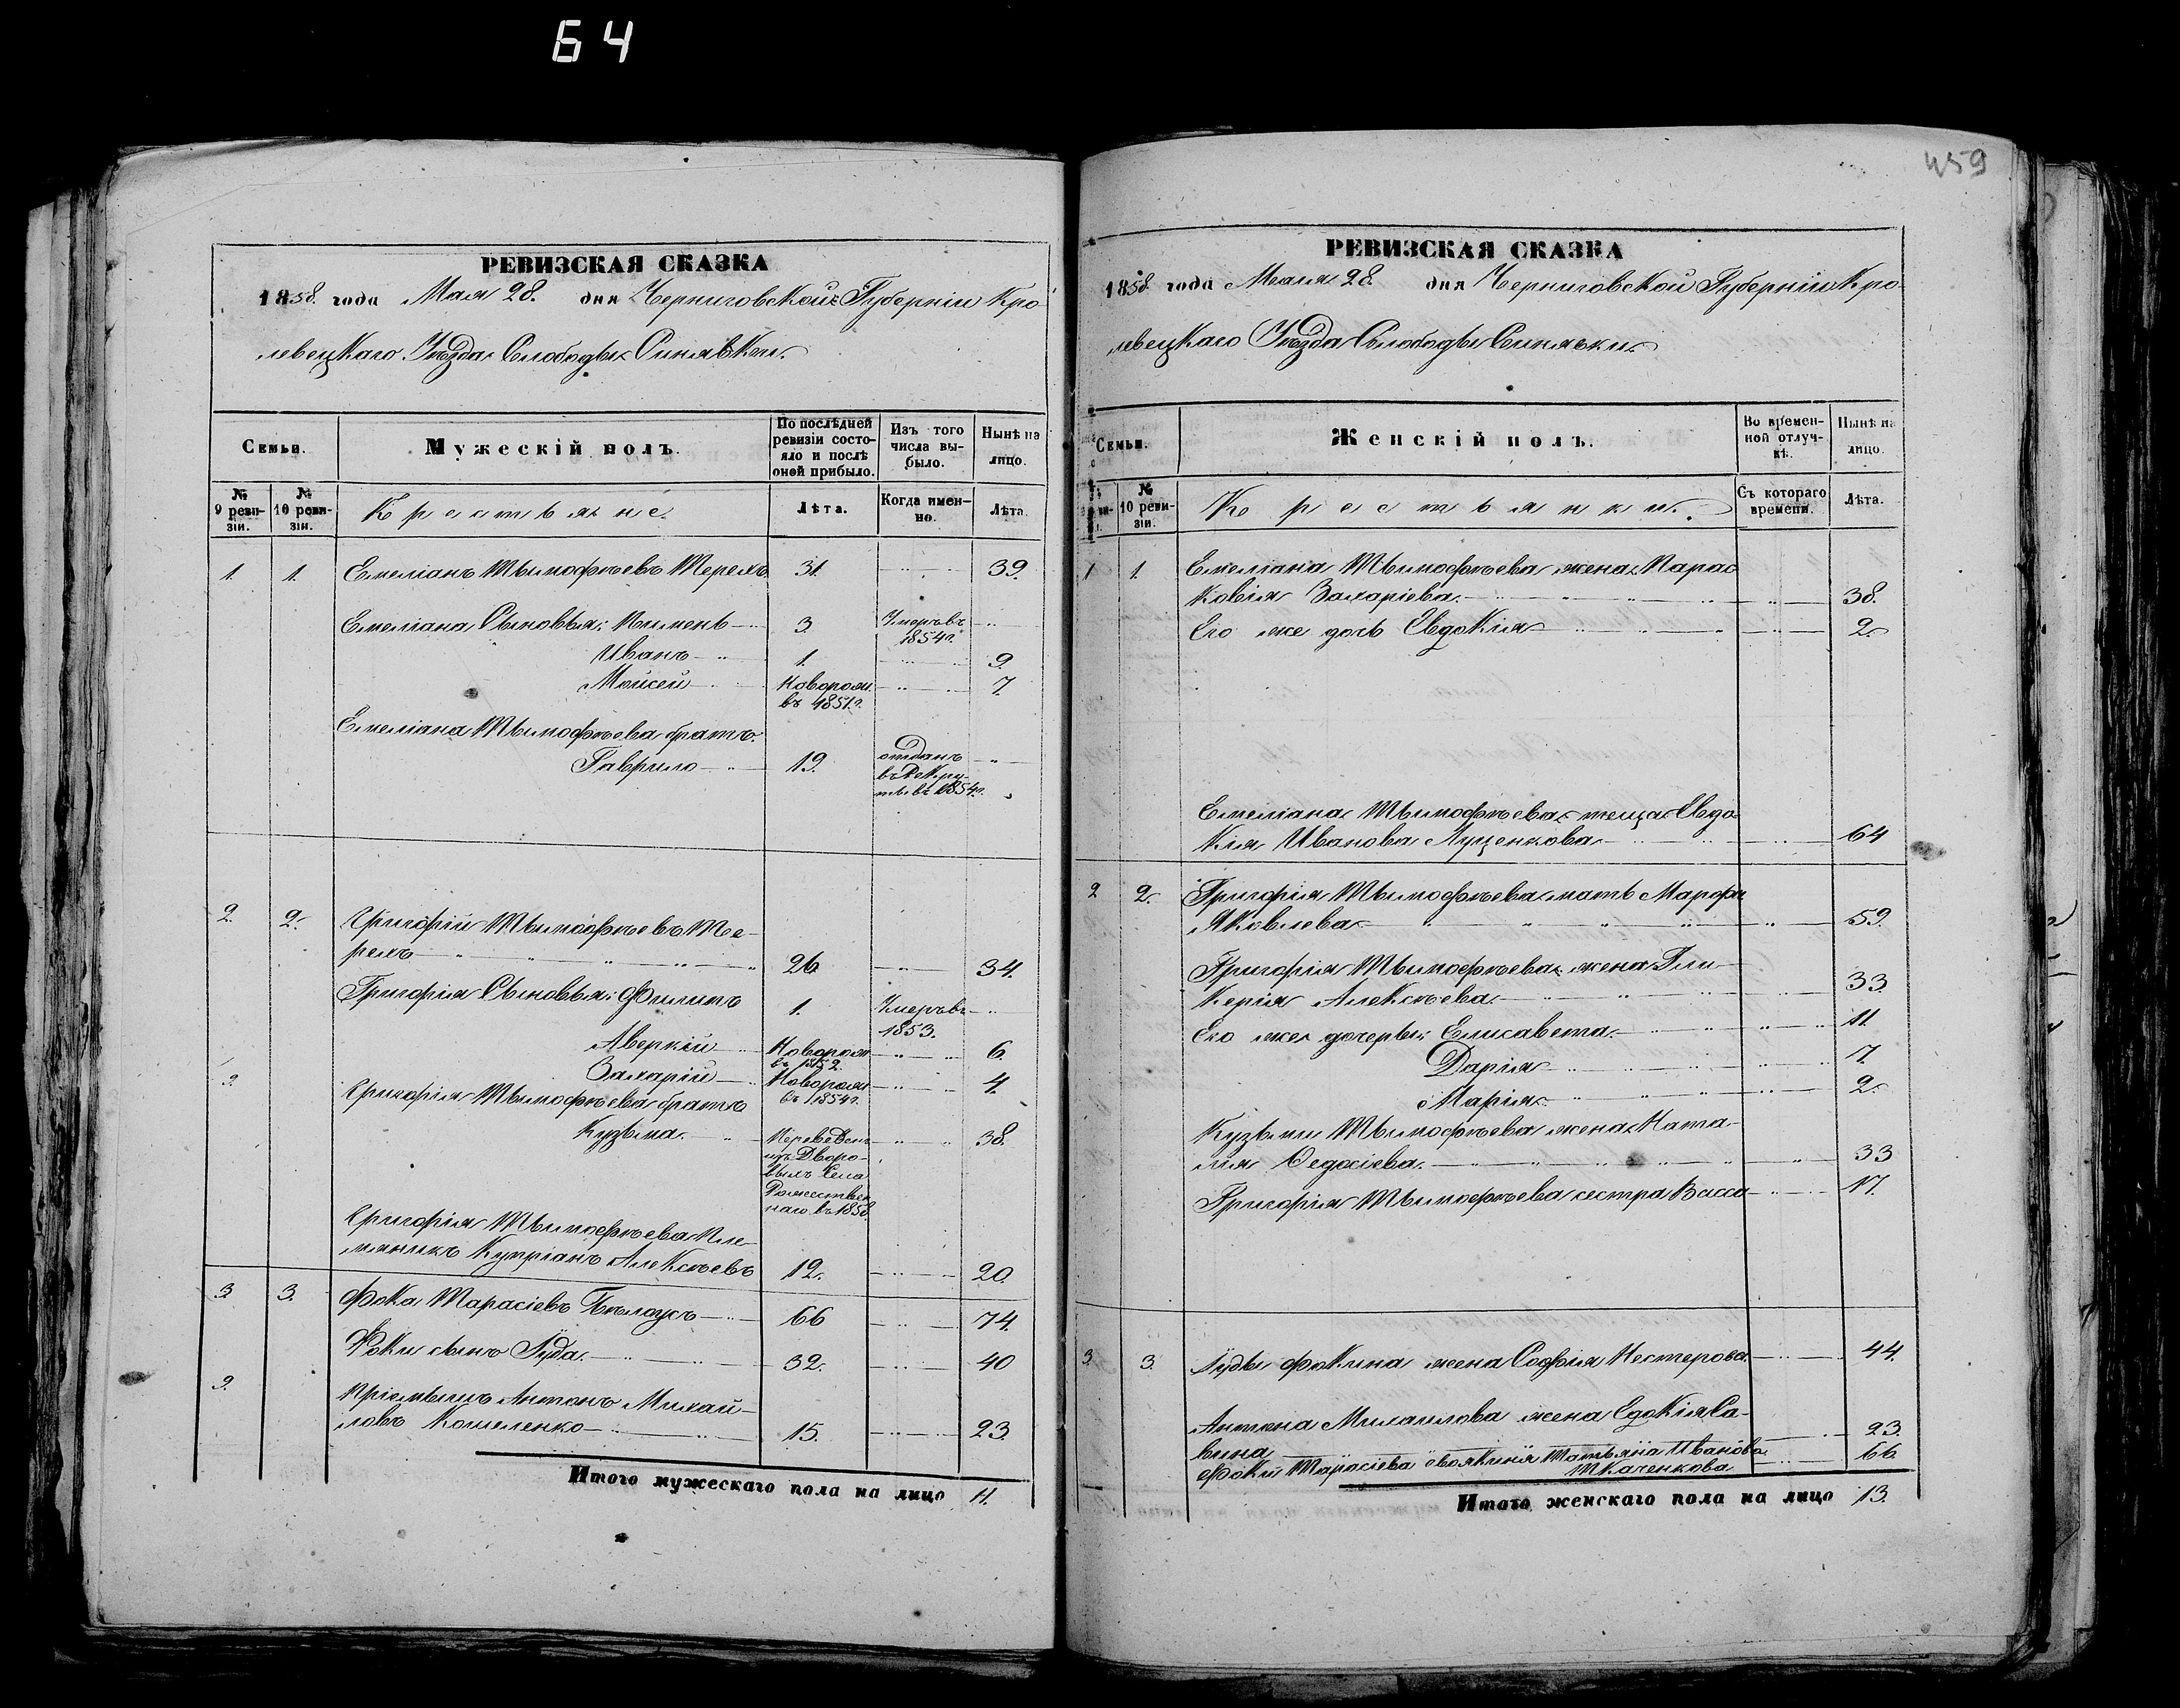 64
459
РЕВИЗСКАЯ СКАЗКА
1858. года Мая 28. дня Черниговской Губерніи Кро
левецкаго Уѣзда Слободы Синявки.
Семьи.
Мужескій полъ.
По послѣдней ревизіи состояло и послѣ оной прибыло.
Изъ того числа выбыло.
Нынѣ на лицо.
№ 9 ревизіи.
№ 10 ревизіи.
Крестьяне.
Лѣта.
Когда именно.
Лѣта.
1. 1. Емеліанъ Тимофѣевъ Терехъ 31. 39.
Емеліана Сыновья: Пименъ 3. Умеръ въ 1854г.
Иванъ 1. 9.
Мойсей Новорож. въ 1851г. 7.
Емеліана Тимофѣева братъ.
Гаврило 19. отданъ въ Рекруты въ 1854г.
2. 2. Григорій Тимофѣевъ Те-
рехъ 26. 34.
Григорія Сыновья: Филипъ 1. Умеръ въ 1853.
Аверкій Новорож. въ 1852. 6.
Захарій Новорож. въ 1854г. 4.
Григорія Тимофѣева братъ
Кузьма. Переведенъ изъ Дворовыхъ Села Рожественаго въ 1858. 38.
Григорія Тимофѣева Пле-
мяникъ Купріанъ Алексѣевъ 12. 20.
3. 3. Фока Тарасіевъ Бѣлоусъ 66 74.
Фоки сынъ Іуда. 32. 40
Пріемышъ Антонъ Михай-
ловъ Кошеленко 15. 23.
Итого мужескаго пола на лицо 11.
РЕВИЗСКАЯ СКАЗКА
1858. года Мая 28. дня Черниговской Губерніи Кро-
левецкаго Уѣзда Слободы Синявки.
Семьи.
Женскій полъ.
Во временной отлучкѣ.
Нынѣ на лицо.
10 ревизіи.
Крестьянки.
Съ котораго времени.
Лѣта.
1 1. Емеліана Тимофѣева жена Парас
ковія Захаріева. 38.
Его же дочь Евдокія 2.
Емеліана Тимофѣева теща Евдо
кія Иванова Луценкова 64
2 2. Григорія Тимофѣева мать Марфа
Яковлева 59.
Григорія Тимофѣева жена Гли-
керія Алексѣева. 33.
Его же дочери: Елисавета. 11.
Дарія 7.
Марія 2.
Кузьмы Тимофѣева жена Ната-
лія Ѳедосіева. 33
Григорія Тимофѣева сестра Васса 17.
3. 3. Іуды Фокина жена Софія Нестерова. 44.
Антона Михаилова жена Едокія Са-
вина 23.
Фоки Тарасіева своякиня Татьяна Иванова
Ткаченкова 66.
Итого женскаго пола на лицо 13.